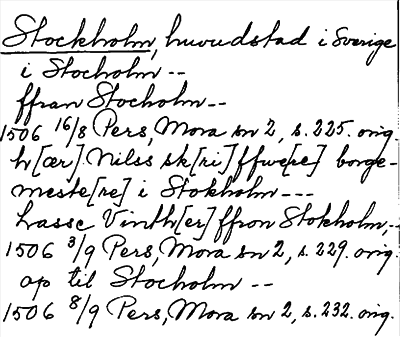 Stockholm, huvudstad i Sverige
i Stocholm --
ffran Stocholm --
1506 16/8 Pers, Mora sn 2, s. 225. orig.
h[ær] Nilss sk[ri]ffwe[re] borge-
meste[re] i Stokholm ---
Lasse Vinth[er] ffron Stokholm,-
1506 3/9 Pers, Mora sn 2, s. 229. orig.
op til Stocholm --
1506 8/9 Pers, Mora sn 2, s. 232. orig.